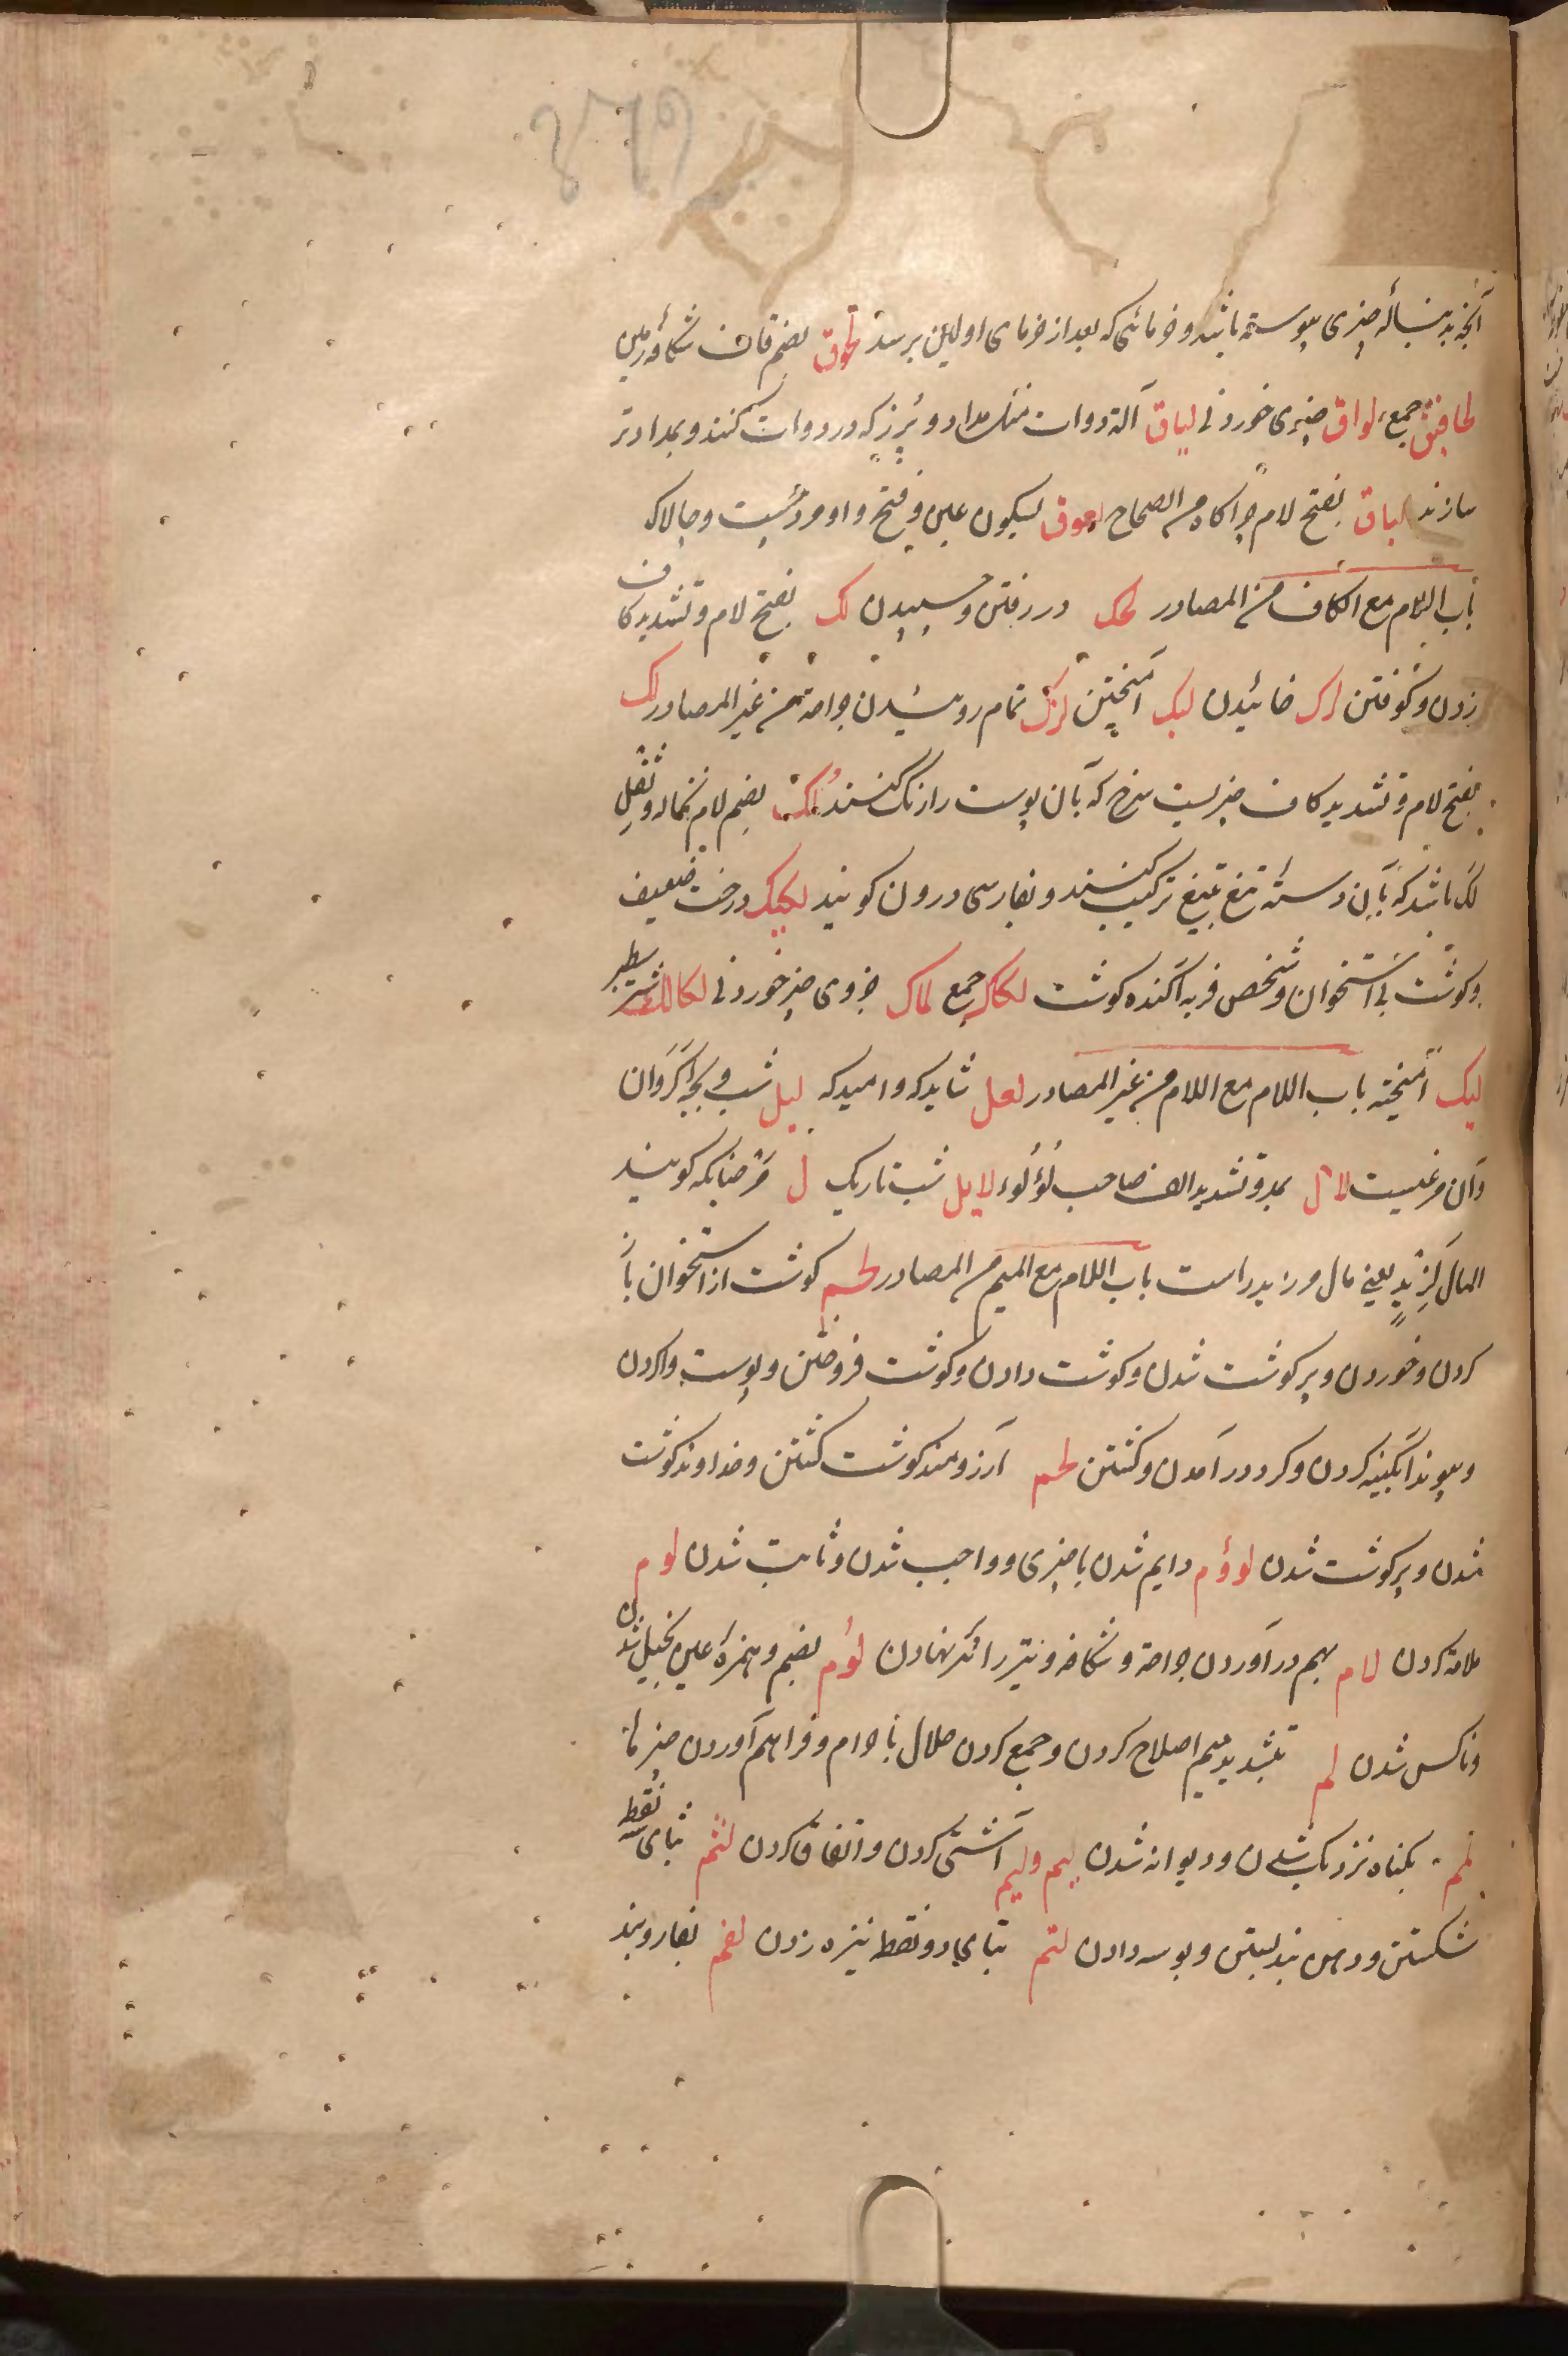 آنچه بدنبالهٔ چیزی پیوسته باشد و خرمائی که بعد از خرمای اولین برسد لحوق بضم قاف شکاف زمین
لخافیق جمع لواق چیزی خوردنی لیاق آلة دوات مثل مداد و پُرز که در دوات کنند و بمداد تر
سازند لیاق بفتح لام چراگاه من الصحاح لعوق بسکون عین و فتح واو مردسبت و چالاک
باب اللام مع الکاف من المصادر لحک در رفتن و چسپیدن لک بفتح لام و تشدید کاف
زدن و کوفتن لوک خائیدن لبک آمیختن لزک تمام روئیدن جراحة من غیر المصادر لک
بفتح لام و تشدید کاف چیزیست سرخ که بآن پوست را رنگ کنند لُک بضم لام نخاله و ثفل
لک باشد که بآن دستهٔ تیغ بتیغ ترکیب کنند و بفارسی درون کویند لکیک درخت ضعیف
و کوشت بی استخوان و شخص فربه آکنده کوشت لکاک جمع لماک جزوی چیز خوردنی لکالک شتر سطبر
لبیک آمیخته باب اللام مع اللام من غیر المصادر لعل شاید که و امید که لیل شب و بچهٔ کَرَوان
و آن مرغیست لاّل بمد و تشدید الف صاحب لؤلوء لایل شب تاریک ل مر چنانکه کویند
المال لِزیدٍ یعنی مال مر زید راست باب اللام مع المیم من المصادر لحم کوشت از استخوان باز
کردن و خوردن و پر کوشت شدن و کوشت دادن و کوشت فروختن و پوست واکردن
و پیوند آبکینه کردن و کرد در آمدن و کشتن لحم آرزومند کوشت کشتن و خداوند کوشت
شدن و پر کوشت شدن لزوم دایم شدن با چیزی و واجب شدن و ثابت شدن لوم
ملامة کردن لام بهم در آوردن جراحة و شکافه و تیر را پر نهادن لُؤم بضم و همزهٔ عین بخیل شدن
و ناکس شدن لم بتشدید میم اصلاح کردن و جمع کردن حلال با حرام و فراهم آوردن چیزها
لمم بکناه نزدیک شدن و دیوانه شدن لیم ولیم آشتی کردن و اتفاق کردن لثم بثای سه نقطه
شکستن و دهن بند بستن و بوسه دادن لتم بتای دو نقطه نیزه زدن لفم بفا رو بند